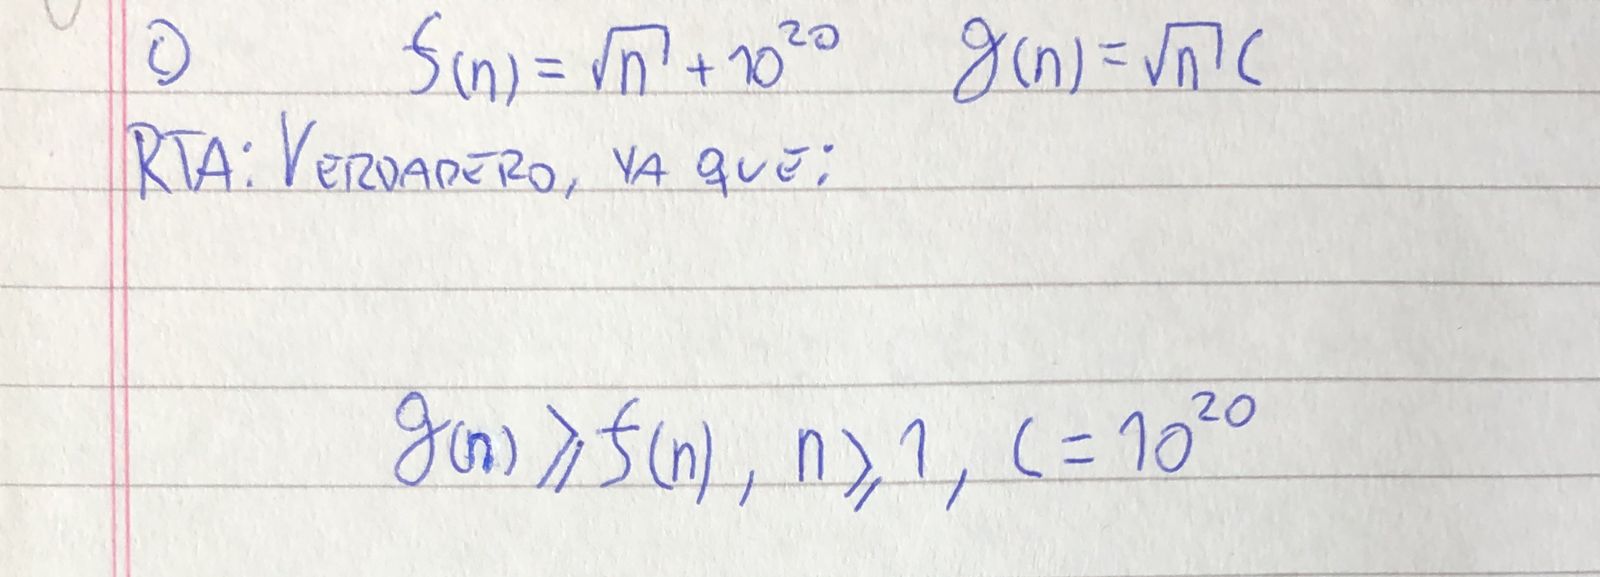 ① f(n) = √n + 10²⁰ g(n) = √n C
RTA: VERDADERO, YA QUE:
g(n) ⩾ f(n), n ⩾ 1, C = 10²⁰